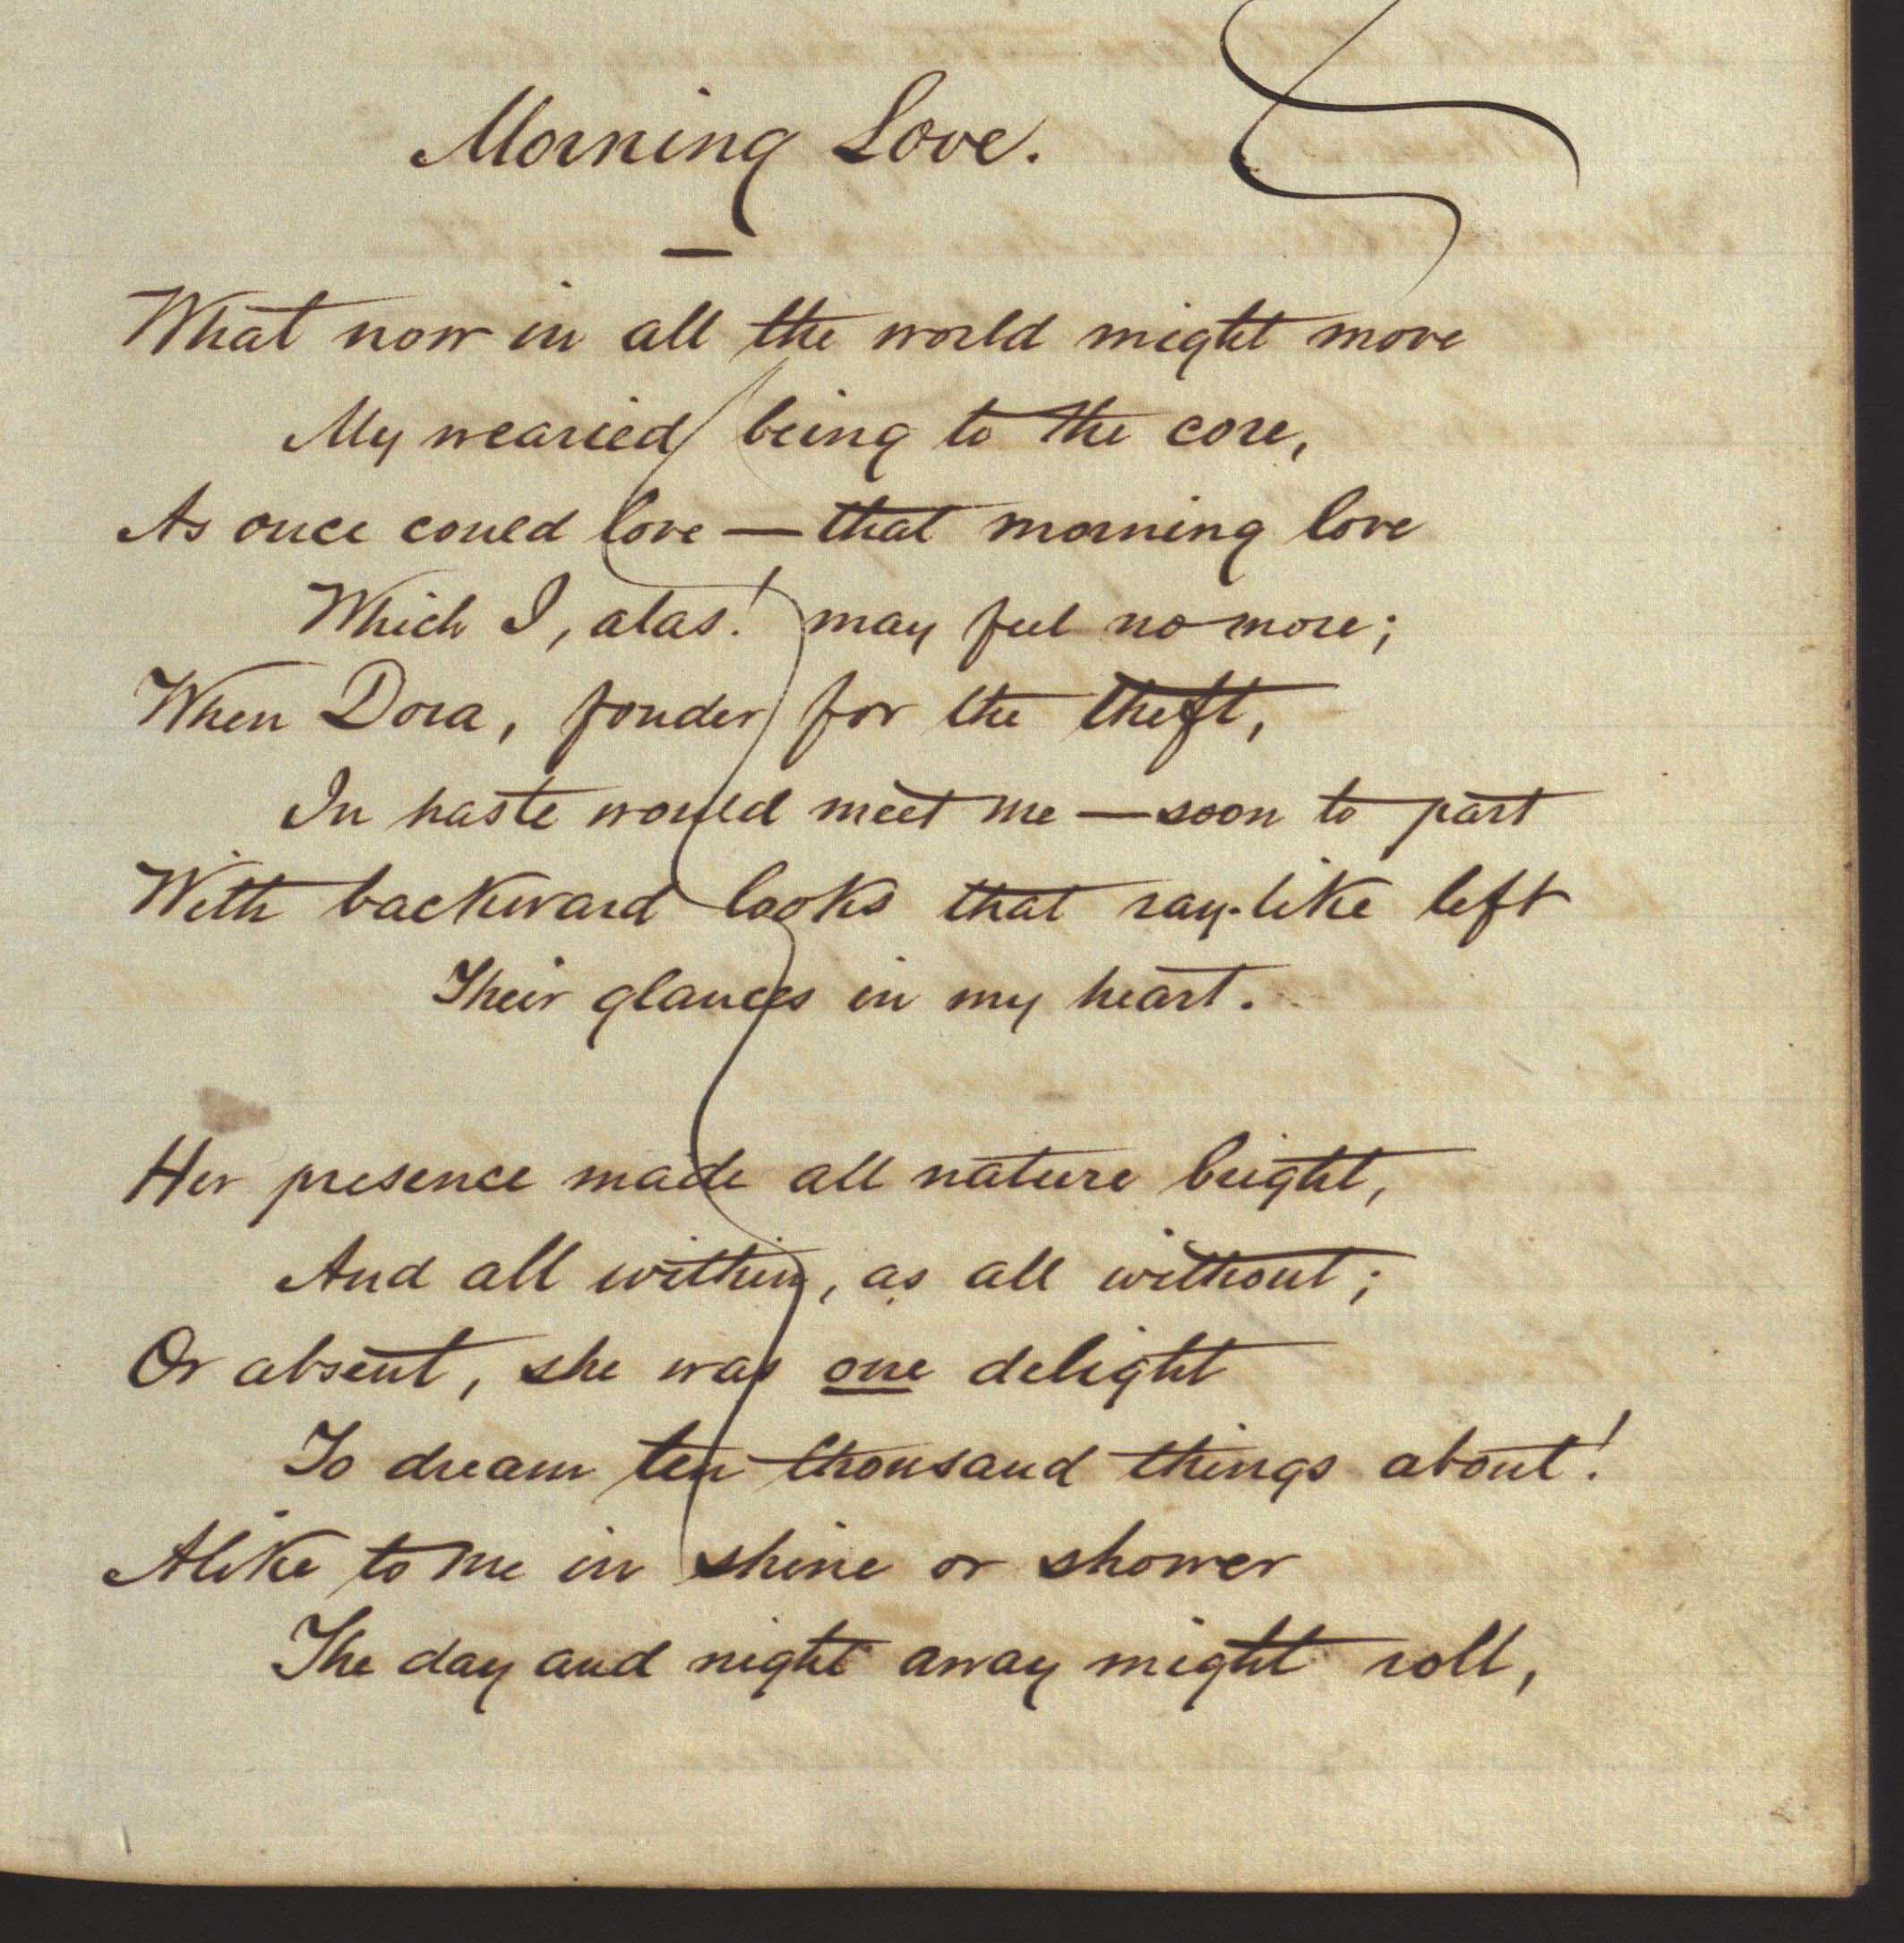 Morning Love.
What now in all the world might move
My wearied being to the core,
As once could love — that morning love
Which I, alas! may feel no more;
When Dora, fonder for the theft,
In haste would meet me — soon to part
With backward looks that ray-like left
Their glances in my heart.
Her presence made all nature bright,
And all within, as all without;
Or absent, she was one delight
To dream ten thousand things about!
Alike to me in shine or shower
The day and night away might roll,